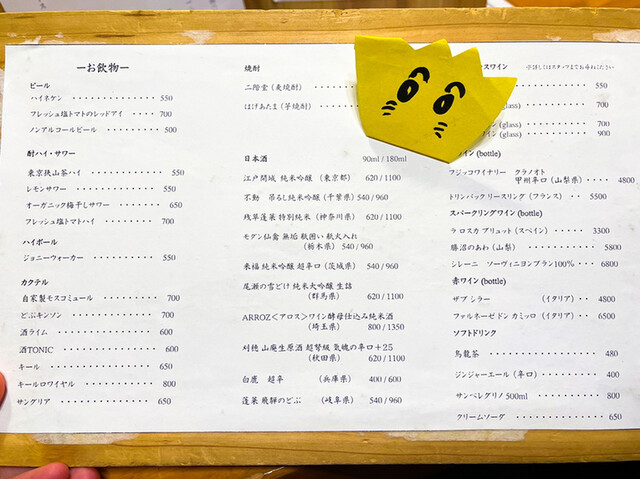 ーお飲物ー
ビール
ハイネケン ・・・・・・・・・・ 550
フレッシュ塩トマトのレッドアイ ・・・・ 700
ノンアルコールビール ・・・・・・・ 500
酎ハイ・サワー
東京狭山茶ハイ ・・・・・・・・・ 550
レモンサワー ・・・・・・・・・・ 550
オーガニック梅干しサワー ・・・・・ 650
フレッシュ塩トマトハイ ・・・・・ 700
ハイボール
ジョニーウォーカー ・・・・・・・・ 550
カクテル
自家製モスコミュール ・・・・・・・ 700
どぶキンソン ・・・・・・・・・・ 700
酒ライム ・・・・・・・・・・・・ 600
酒TONIC ・・・・・・・・・・・・ 600
キール ・・・・・・・・・・・・・ 650
キールロワイヤル ・・・・・・・・・ 800
サングリア ・・・・・・・・・・・ 650
焼酎
二階堂 (麦焼酎) ・・・
はげあたま (芋焼酎) ・・・
日本酒 90ml / 180ml
江戸開城 純米吟醸 (東京都) 620 / 1100
不動 吊るし純米吟醸 (千葉県) 540 / 960
残草蓬莱 特別純米 (神奈川県) 620 / 1100
モダン仙禽 無垢 瓶囲い 瓶火入れ
(栃木県) 540 / 960
来福 純米吟醸 超辛口 (茨城県) 540 / 960
尾瀬の雪どけ 純米大吟醸 生詰
(群馬県) 620 / 1100
ARROZ＜アロス＞ワイン酵母仕込み純米酒
(埼玉県) 800 / 1350
刈穂 山廃生原酒 超弩級 気魄の辛口＋25
(秋田県) 620 / 1100
白鹿 超辛 (兵庫県) 400 / 600
蓬莱 飛騨のどぶ (岐阜県) 540 / 960
スワイン ※詳しくはスタッフまでお尋ねください
・・・ 550
(glass) ・・・ 700
(glass) ・・・ 700
イン (glass) ・・・ 900
ワイン (bottle)
フジッコワイナリー クラノオト
甲州辛口 (山梨県) ・・・ 4800
トリンバック リースリング (フランス) ・・ 5500
スパークリングワイン (bottle)
ラ ロスカ ブリュット (スペイン) ・・・・・ 3300
勝沼のあわ (山梨) ・・・・・・・・ 5800
シレーニ ソーヴィニヨンブラン100% ・・・ 6800
赤ワイン (bottle)
ザブ シラー (イタリア) ・・ 4800
ファルネーゼドン カミッロ (イタリア) ・・ 6500
ソフトドリンク
烏龍茶 ・・・・・・・・・・・・ 480
ジンジャーエール (辛口) ・・・・・・ 400
サンペレグリノ 500ml ・・・・・・・ 800
クリームソーダ ・・・・・・・・・ 650